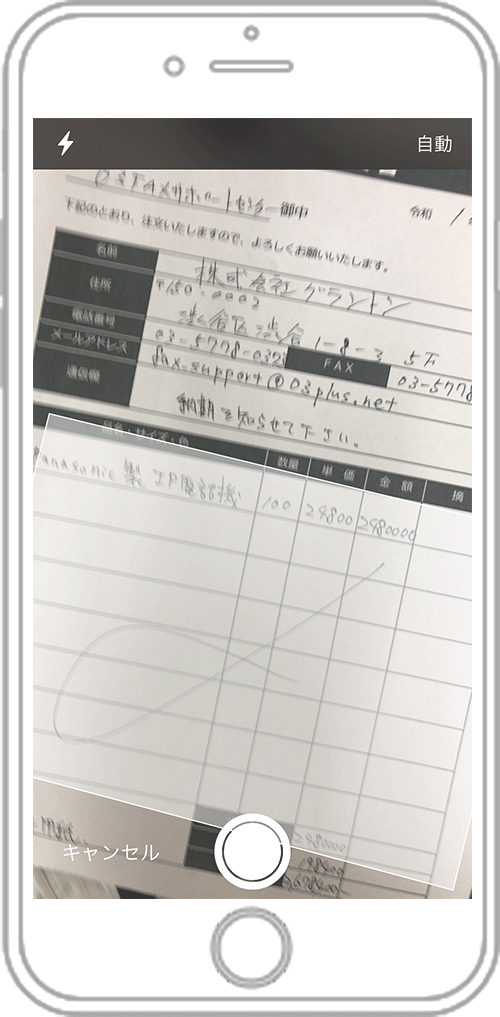 自動
03FAXサポートセンター 御中
令和
下記のとおり、注文いたしますので、よろしくお願いいたします。
名前 株式会社グラントン
住所 〒150-0002
渋谷区 渋谷 1-8-3 5F
電話番号 03-5778-032 FAX 03-5778
メールアドレス fax-support@03plus.net
通信欄 納期を知らせて下さい。
品名・サイズ・色 数量 単価 金額 摘
Panasonic 製 IP電話機 100 24800 2480000
2480000
キャンセル 198400
2,678400-